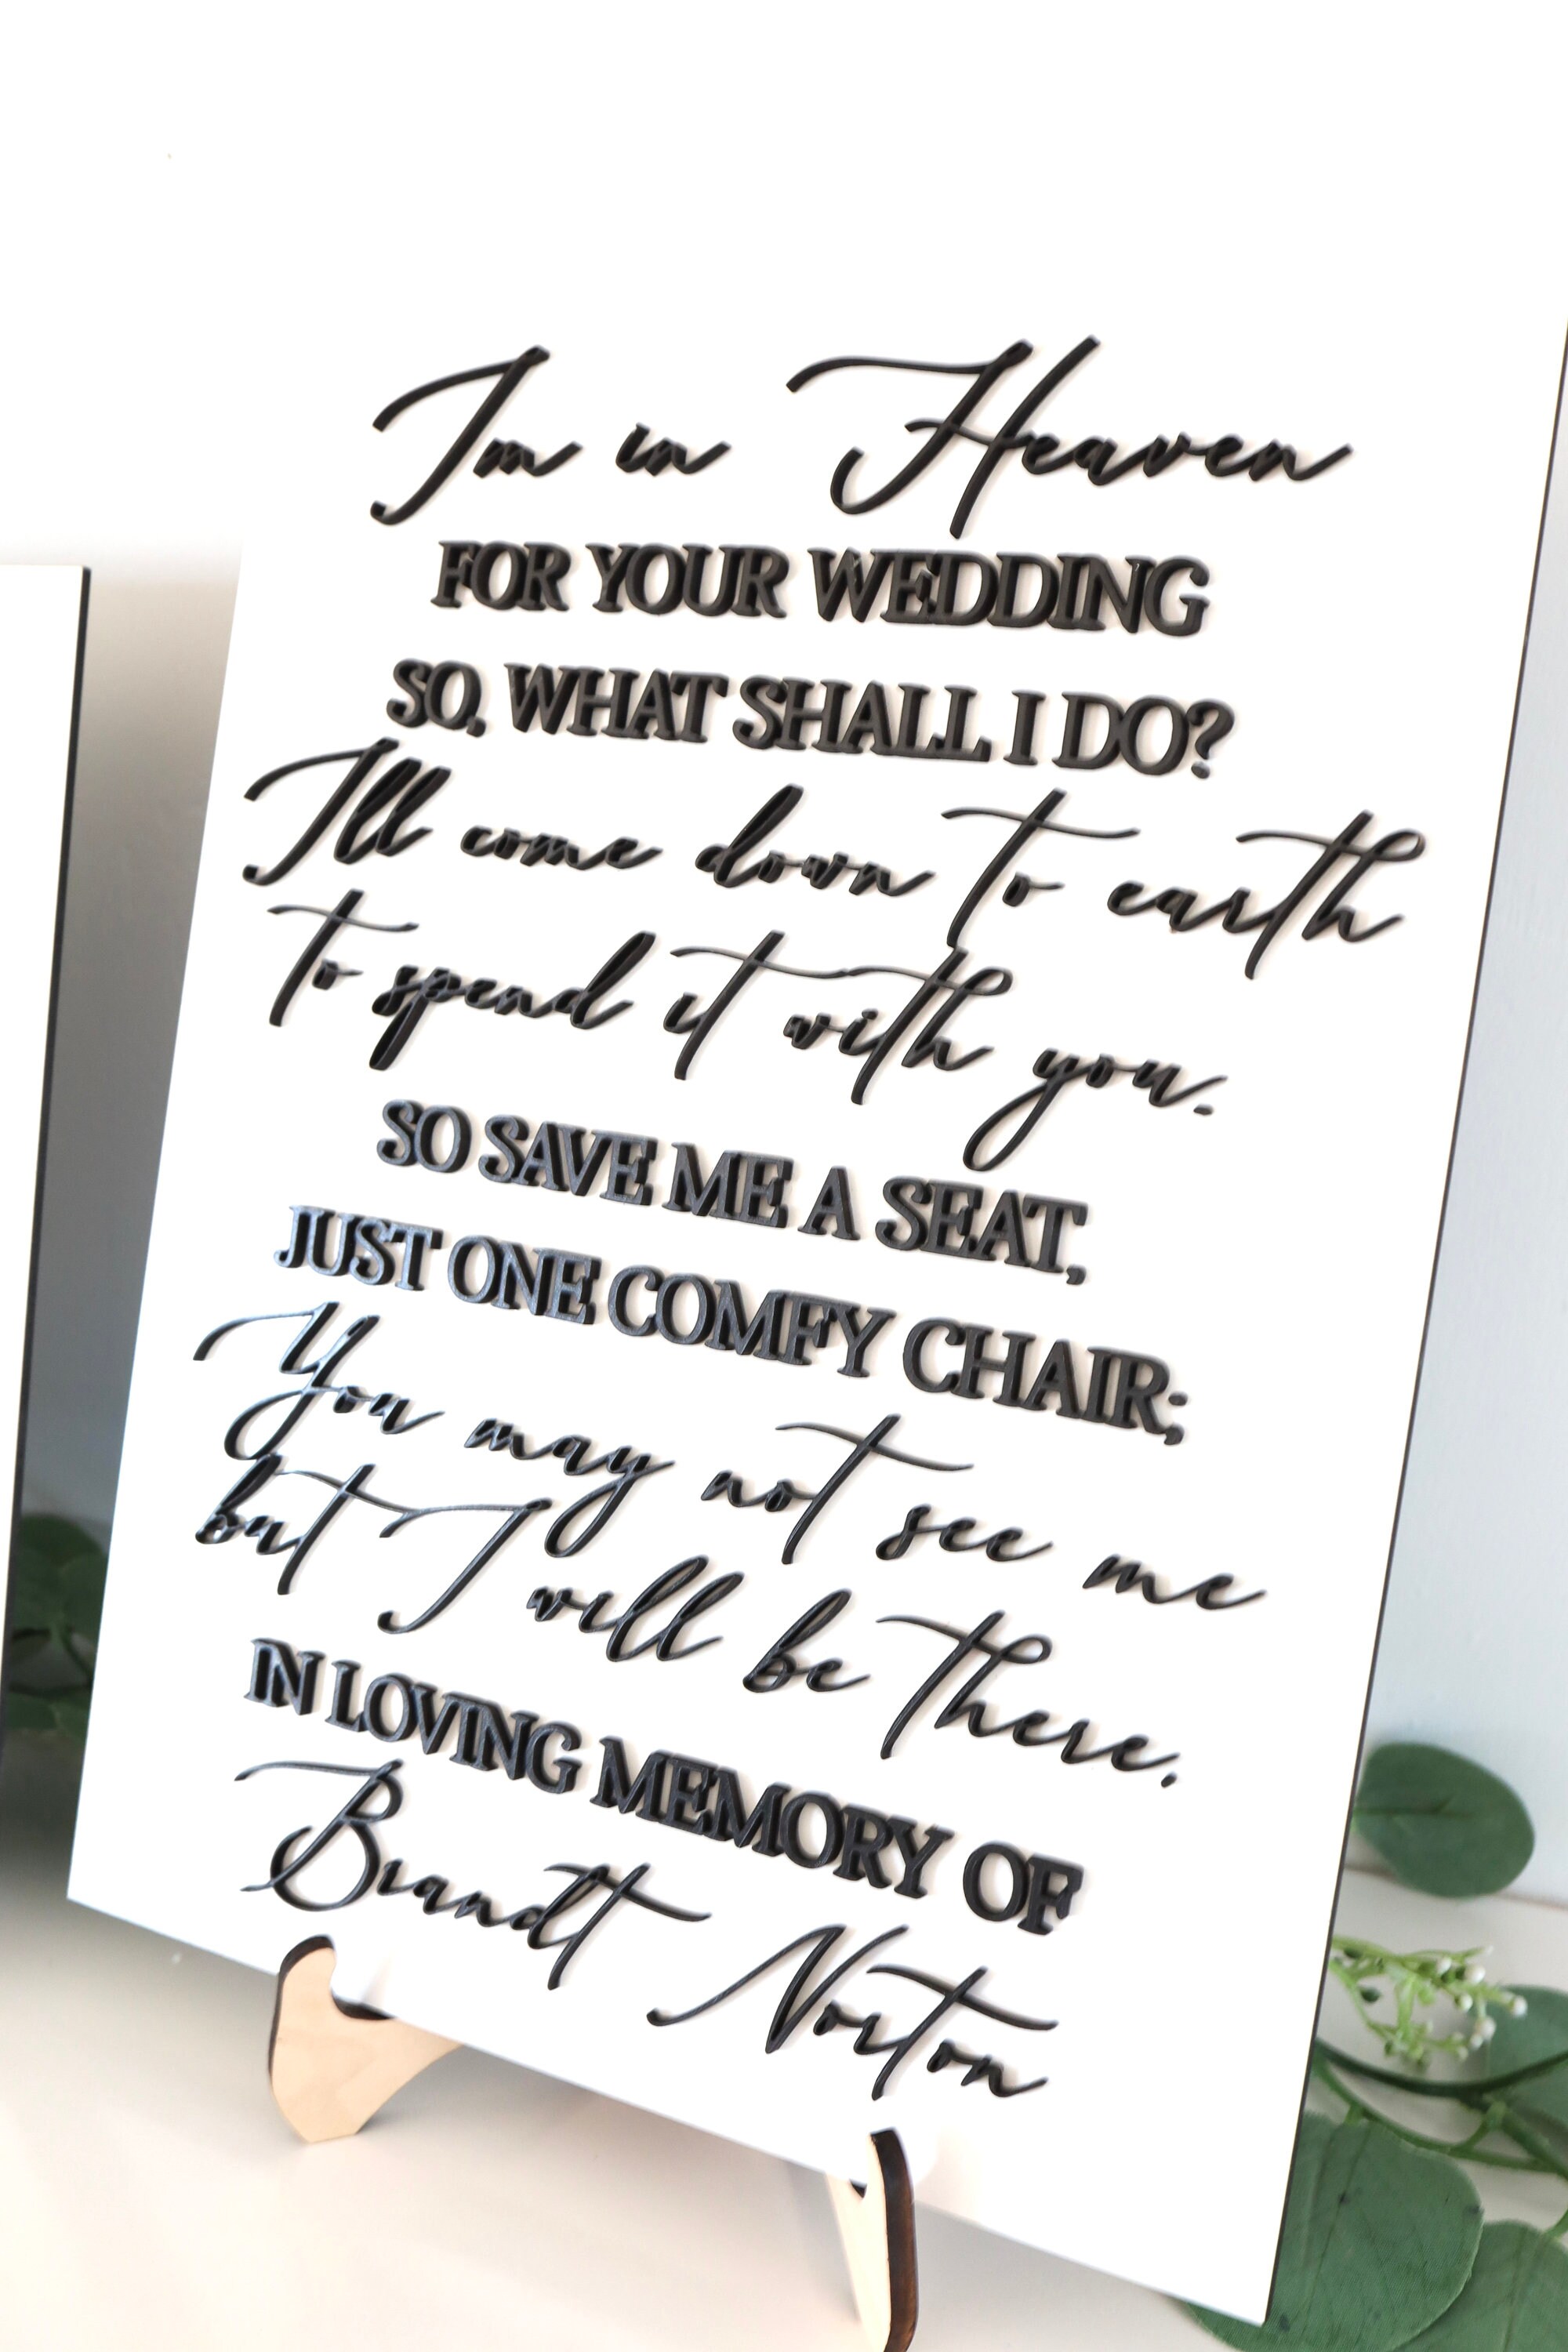 Im in Heaven
FOR YOUR WEDDING
SO, WHAT SHALL I DO?
Ill come down to earth
to spend it with you.
SO SAVE ME A SEAT,
JUST ONE COMFY CHAIR;
You may not see me
but I will be there.
IN LOVING MEMORY OF
Brandt Norton